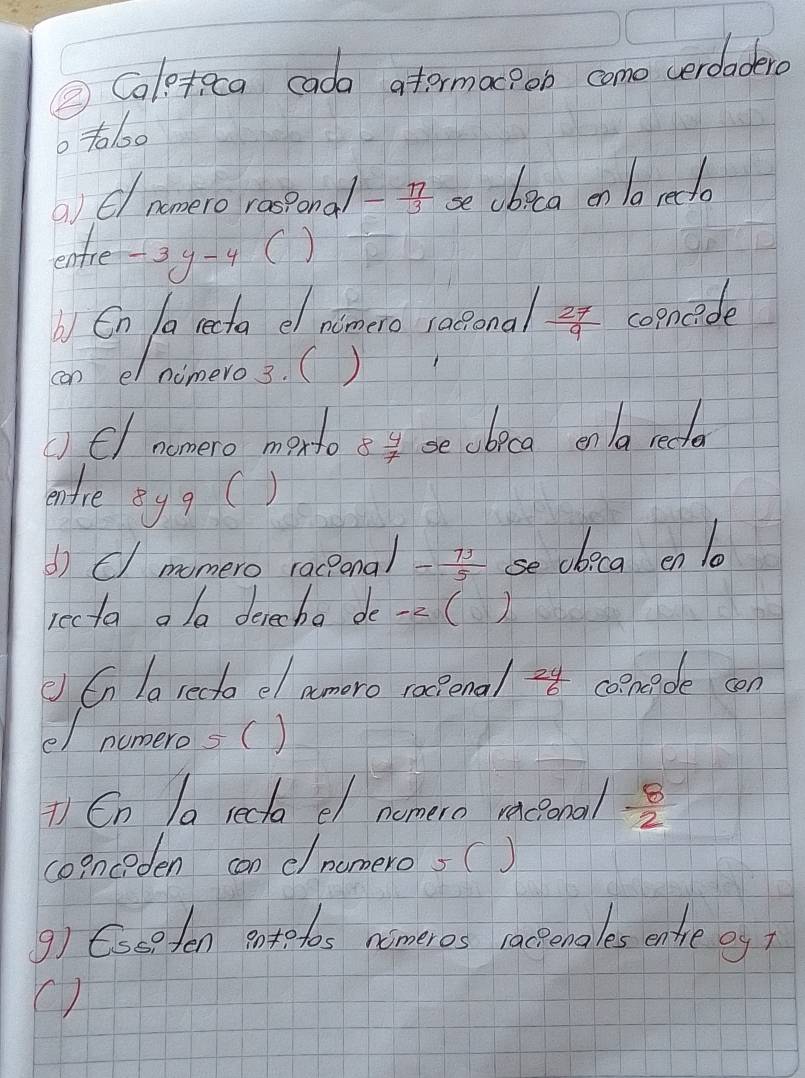 ② Califica cada afirmacion como verdadero
o falso
a) El numero rasional - 17/3 se ubica en la recta
entre -3 y -4 ( )
b) En la recta el número racional 27/9 coincide
con el número 3. ( )
c) El numero mixto 8 4/7 se ubica en la recta
entre 8 y 9 ( )
d) El mumero racional - 13/5 se ubica en la
recta a la derecha de -2 ( )
e) En la recta el numero racional 24/6 coincide con
el numero 5 ( )
f) En la recta el numero racional 8/2
coinciden con el numero 5 ( )
g) Essiten infitos números racienales entre 0 y 1
( )